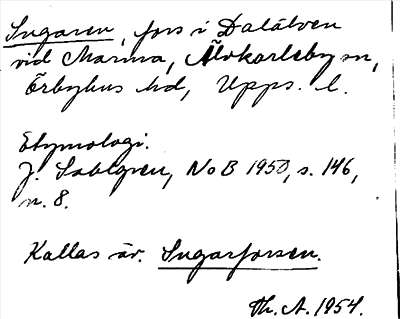 Sugaren, fors i Dalälven
vid Marma, Älvkarleby sn,
Örbyhus hd, Upps. l.
Etymologi.
J. Sahlgren, NoB 1950, s. 146,
n. 8.
Kallas äv. Sugarforsen.
Th. A. 1954.